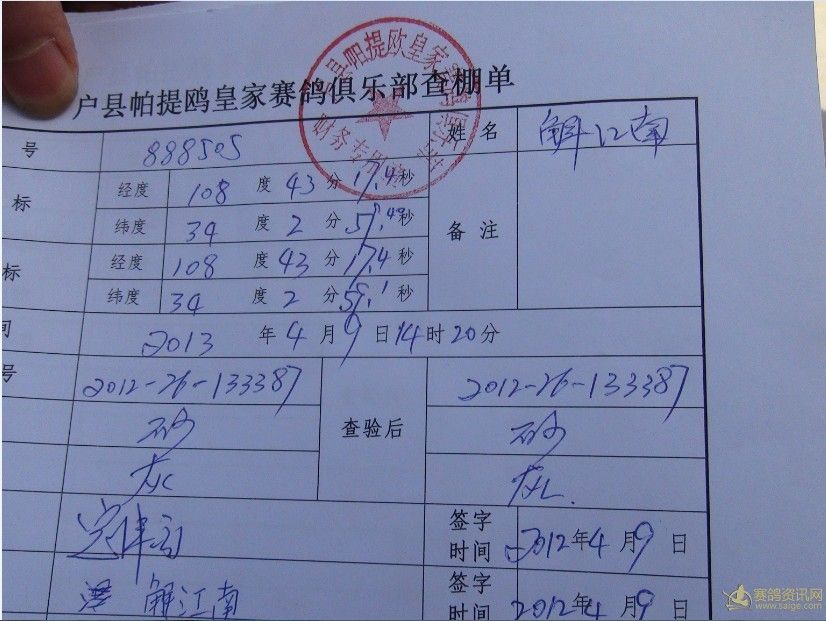 户县帕提鸥皇家赛鸽俱乐部查棚单
财务专用章
号 888505 姓名 解江南
标 经度 108 度 43 分 17.4 秒 备注
纬度 34 度 2 分 秒
标 经度 108 度 43 分 17.4 秒
纬度 34 度 2 分 秒
间 2013 年 4 月 9 日 14 时 20 分
号 2012-26-133387 查验后 2012-26-133387
砂 砂
灰 灰
签字时间 2012年4月9日
解江南 签字时间 2012年4月9日
赛鸽资讯网
www.saige.com